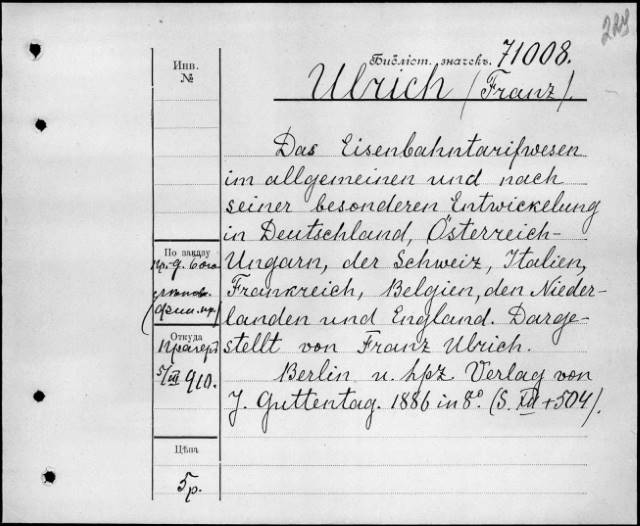 Библіот. значекъ. 71008.
Инв.
№
Ulrich (Franz).
Das Eisenbahntarifwesen
im allgemeinen und nach
seiner besonderen Entwickelung
in Deutschland, Österreich-
Ungarn, der Schweiz, Italien,
Frankreich, Belgien, den Nieder-
landen und England. Darge-
stellt von Franz Ulrich.
Berlin u. Lpz. Verlag von
J. Guttentag. 1886 in 8º. (S. XII + 504).
По заказу
Откуда
5/III 910.
Цѣна
5 р.